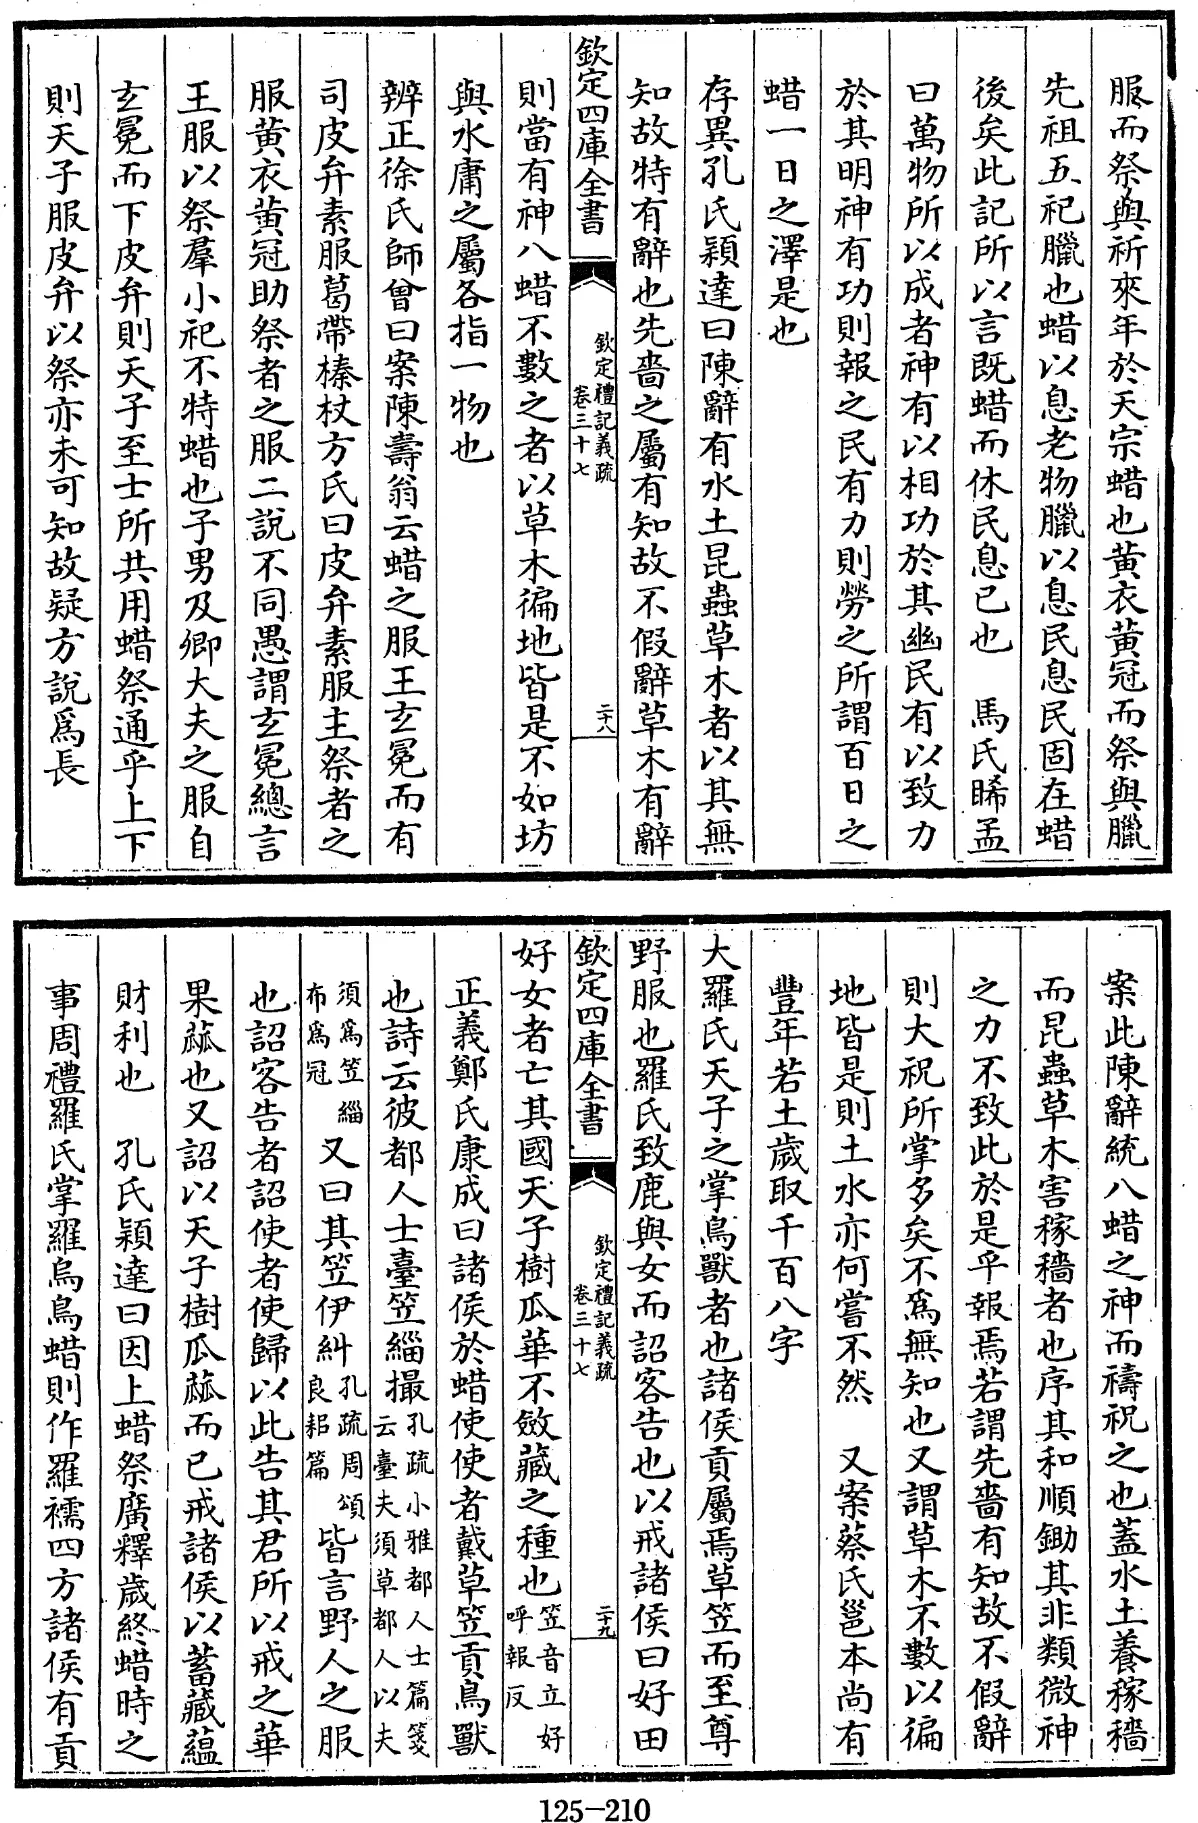 服而祭與祈來年於天宗蜡也黄衣黄冠而祭與臘
先祖五祀臘也蜡以息老物臘以息民息民固在蜡
後矣此記所以言既蜡而休民息已也　馬氏睎孟
曰萬物所以成者神有以相功於其幽民有以致力
於其明神有功則報之民有力則勞之所謂百日之
蜡一日之澤是也
存異孔氏穎達曰陳辭有水土昆蟲草木者以其無
知故特有辭也先嗇之屬有知故不假辭草木有辭
欽定四庫全書
欽定禮記義疏
卷三十七
二十八
則當有神八蜡不數之者以草木徧地皆是不如坊
與水庸之屬各指一物也
辨正徐氏師曾曰案陳壽翁云蜡之服王玄冕而有
司皮弁素服葛帶榛杖方氏曰皮弁素服主祭者之
服黄衣黄冠助祭者之服二說不同愚謂玄冕總言
王服以祭羣小祀不特蜡也子男及卿大夫之服自
玄冕而下皮弁則天子至士所共用蜡祭通乎上下
則天子服皮弁以祭亦未可知故疑方說爲長
案此陳辭統八蜡之神而禱祝之也蓋水土養稼穡
而昆蟲草木害稼穡者也序其和順鋤其非類微神
之力不致此於是乎報焉若謂先嗇有知故不假辭
則大祝所掌多矣不爲無知也又謂草木不數以徧
地皆是則土水亦何嘗不然　又案蔡氏邕本尚有
豐年若土歲取千百八字
大羅氏天子之掌鳥獸者也諸侯貢屬焉草笠而至尊
野服也羅氏致鹿與女而詔客告也以戒諸侯曰好田
欽定四庫全書
欽定禮記義疏
卷三十七
二十九
好女者亡其國天子樹瓜華不斂藏之種也笠音立好呼報反
正義鄭氏康成曰諸侯於蜡使使者戴草笠貢鳥獸
也詩云彼都人士臺笠緇撮孔疏小雅都人士篇箋云臺夫須草都人以夫
須爲笠緇布爲冠又曰其笠伊糾孔疏周頌良耜篇皆言野人之服
也詔客告者詔使者使歸以此告其君所以戒之華
果蓏也又詔以天子樹瓜蓏而已戒諸侯以蓄藏蘊
財利也　孔氏穎達曰因上蜡祭廣釋歲終蜡時之
事周禮羅氏掌羅烏鳥蜡則作羅襦四方諸侯有貢
125-210